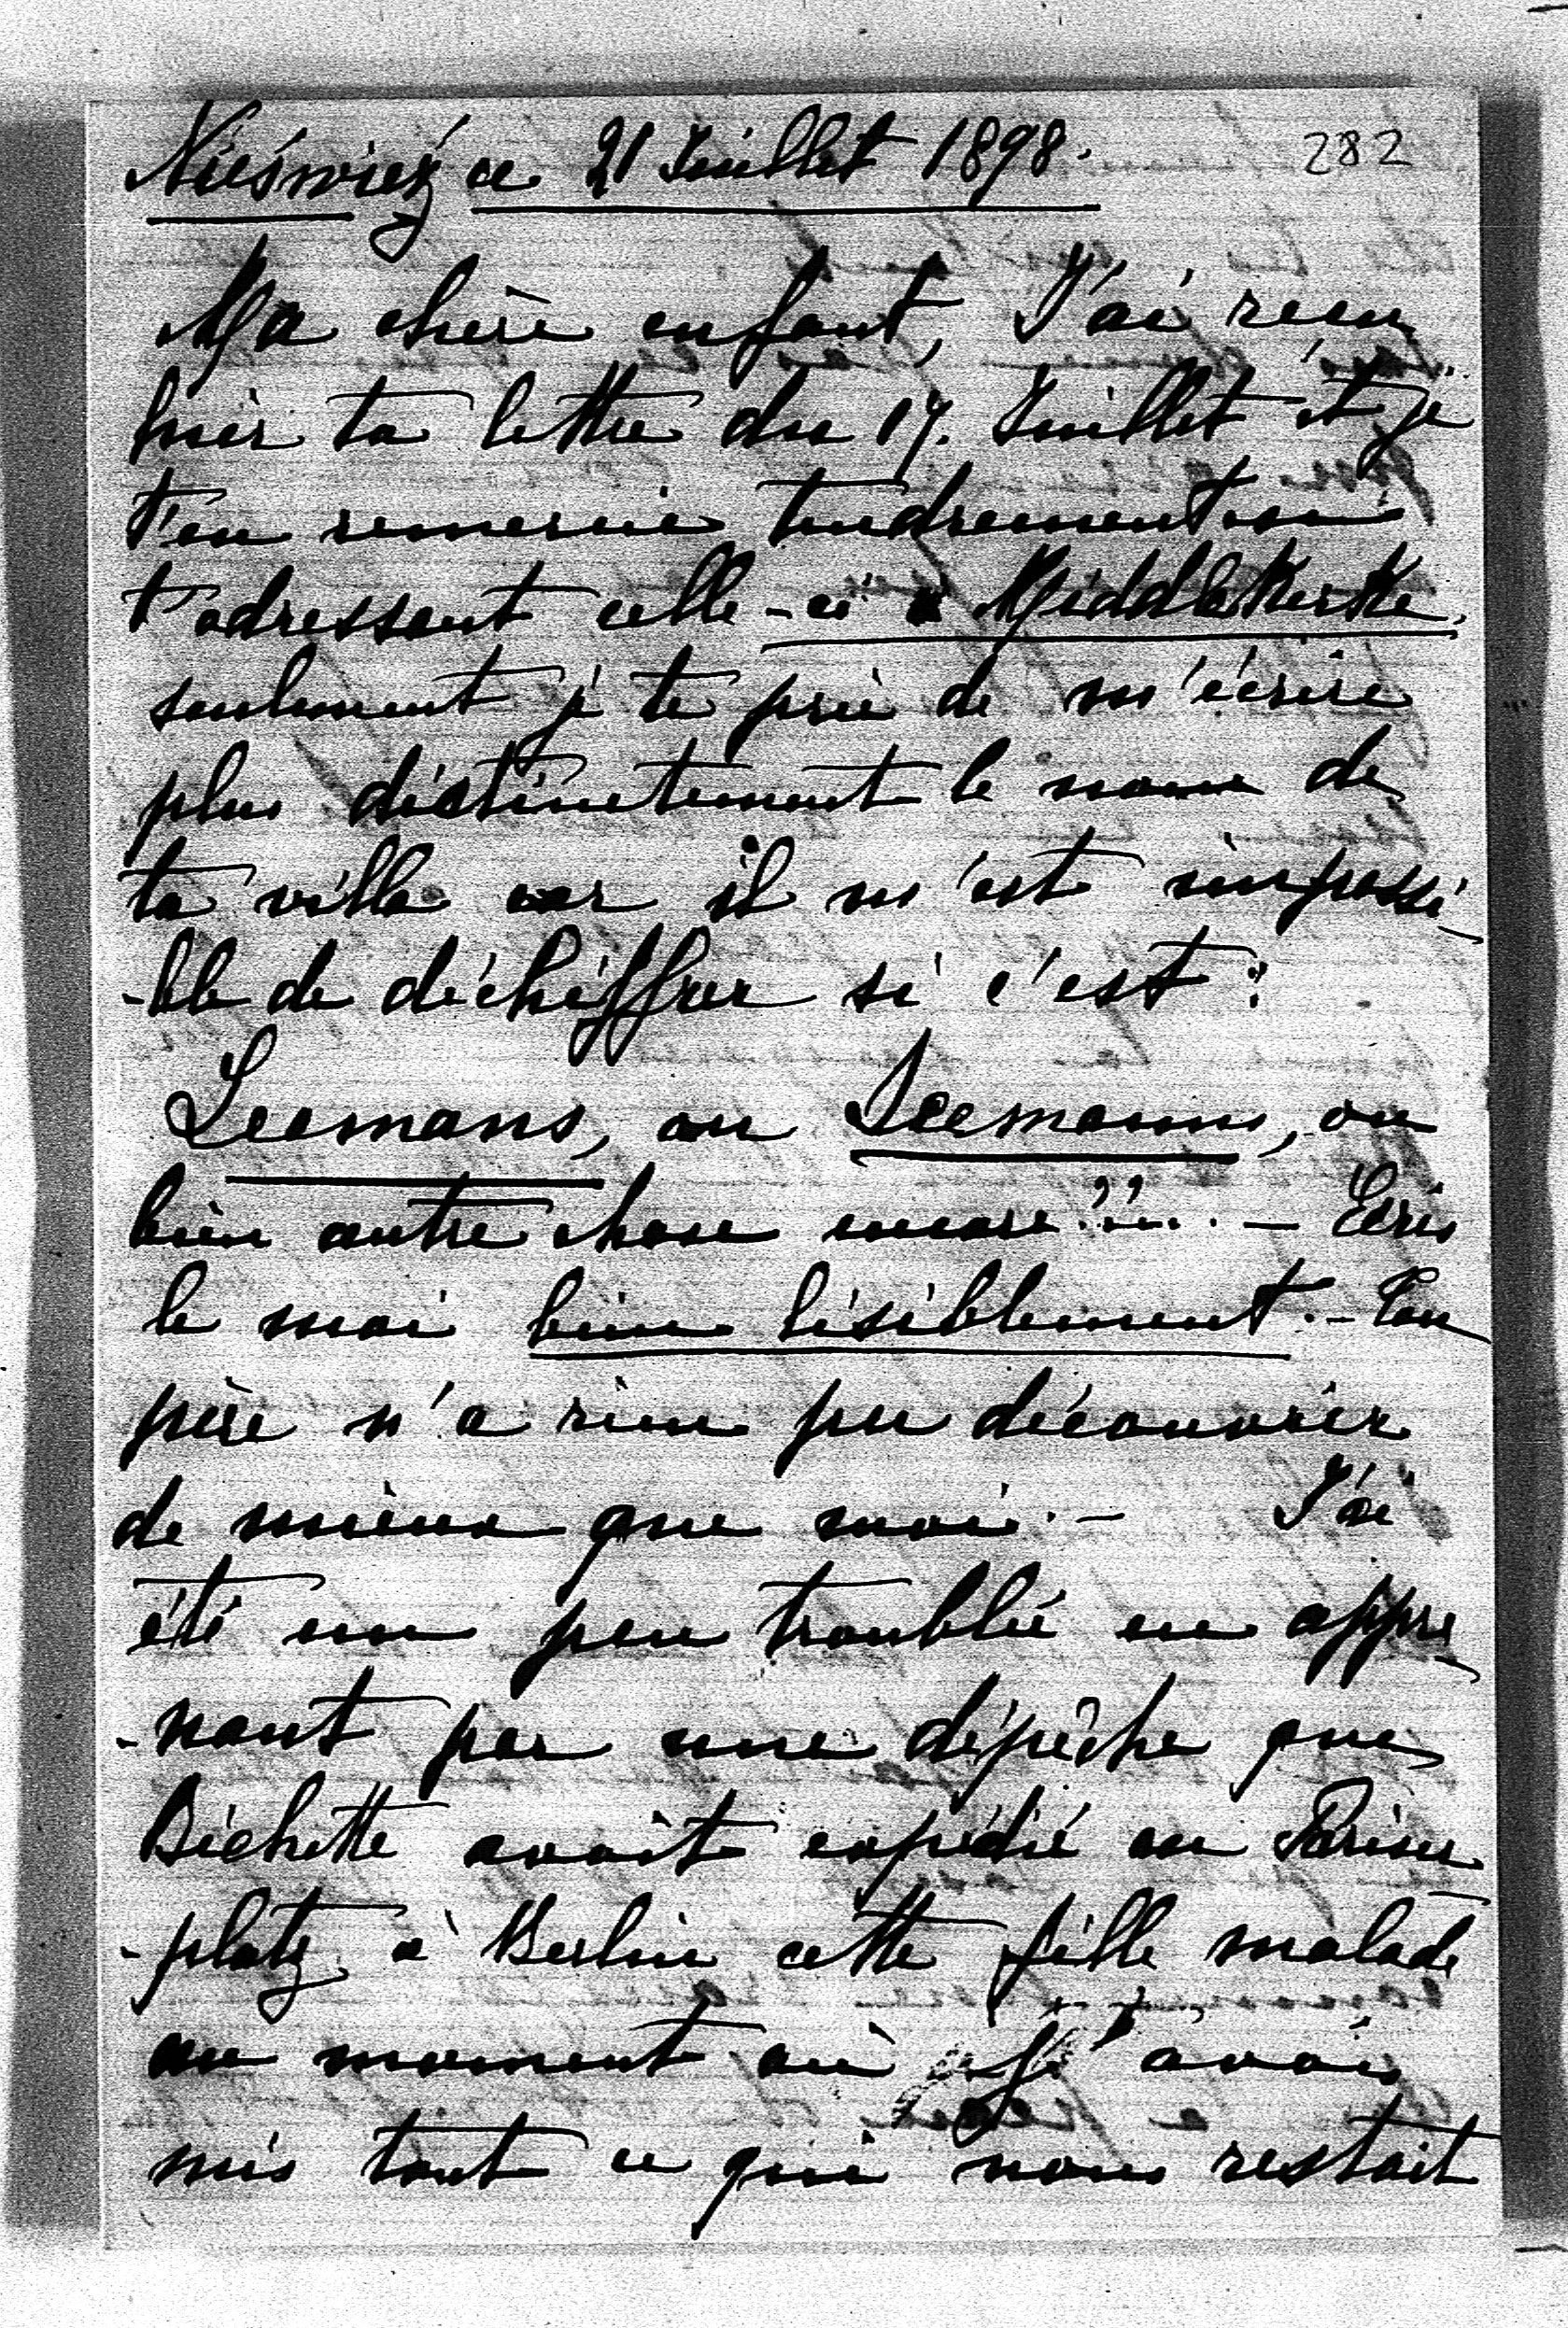 Nieśwież ce 21 Juillet 1898.
282
Ma chère enfant, J'ai reçu
hier ta lettre du 17. Juillet et je
t'en remercie tendrement en
t'adressant celle-ci à Middelkerke,
seulement je te prie de m'écrire
plus distinctement le nom de
ta villa car il m'est impossi
-ble de déchiffrer si c'est:
Leemans, ou Seemanns, ou
bien autre chose encore??... - Écris
le moi bien lisiblement. - Ton
père n'a rien pu découvrir
de mieux que moi. - J'ai
été un peu troublée en appre
-nant par une dépêche que
Bichette avait expédié au Pariser
-platz à Berlin cette fille malade
au moment où j'avais
mis tout ce qui nous restait